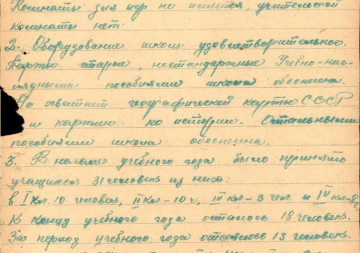 Комнаты для игр не имеется, учительской
комнаты нет.
2. Оборудование школы удовлетворительное.
Парты старые, нестандартные. Учебно-наг-
лядными пособиями школа обеспечена.
Не хватает географической карты СССР
и картин по истории. Остальными
пособиями школа обеспечена.
3. В начале учебного года было принято
учащихся 31 человек из них:
в I кл. 10 человек, II кл-10 ч, III кл-3 чел. и IV кл-8ч
К концу учебного года осталось 18 человек.
За период учебного года отсеялось 13 человек.